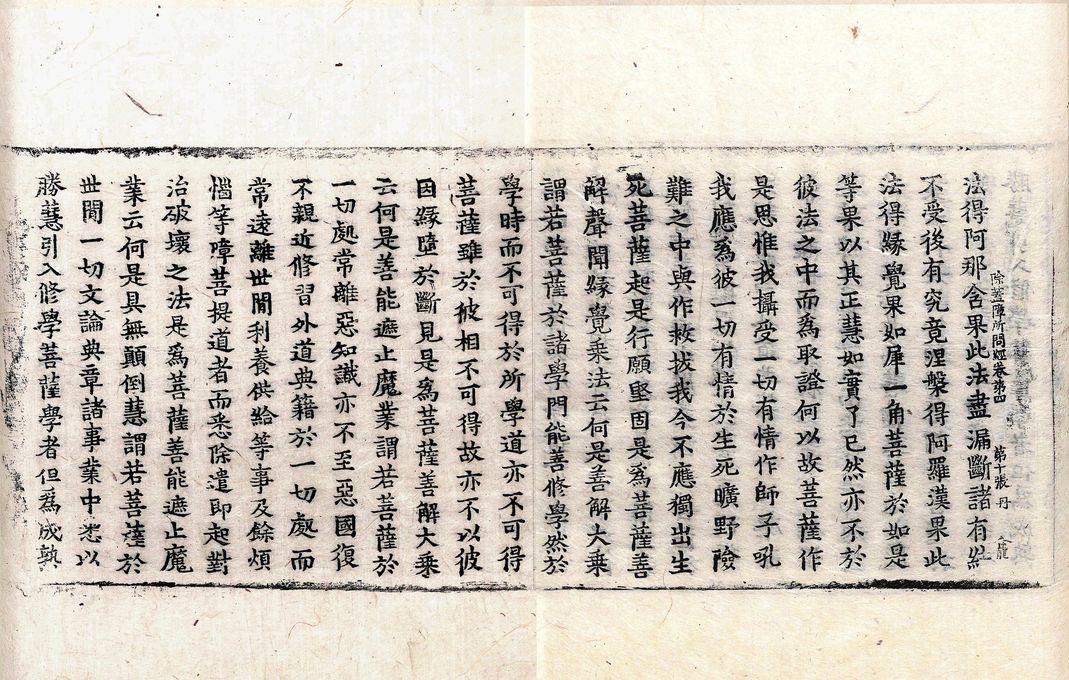 除蓋障所問經卷第四 第十張 丹 龍
法得阿那含果此法盡漏斷諸有結
不受後有究竟涅槃得阿羅漢果此
法得緣覺果如犀一角菩薩於如是
等果以其正慧如實了已然亦不於
彼法之中而爲取證何以故菩薩作
是思惟我攝受一切有情作師子吼
我應爲彼一切有情於生死曠野險
難之中與作救拔我今不應獨出生
死菩薩起是行願堅固是爲菩薩善
解聲聞緣覺乘法云何是善解大乘
謂若菩薩於諸學門能善修學然於
學時而不可得於所學道亦不可得
菩薩雖於彼相不可得故亦不以彼
因緣墮於斷見是爲菩薩善解大乘
云何是善能遮止魔業謂若菩薩於
一切處常離惡知識亦不至惡國復
不親近修習外道典籍於一切處而
常遠離世間利養供給等事及餘煩
惱等障菩提道者而悉除遣即起對
治破壞之法是爲菩薩善能遮止魔
業云何是具無顛倒慧謂若菩薩於
世間一切文論典章諸事業中悉以
勝慧引入修學菩薩學者但爲成熟